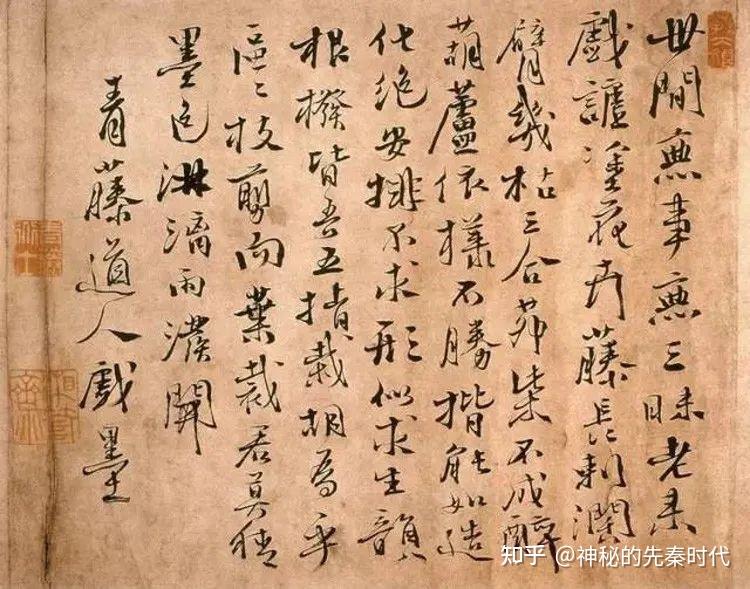 世間無事無三昧老来
戲謔塗花卉藤長刺闊
臂幾枯三合茅柴不成醉
葫蘆依樣不勝揩能如造
化絶安排不求形似求生韻
根撥皆吾五指栽胡為乎
區〻枝剪而葉裁君莫猜
墨色淋漓雨潑開
青藤道人戲墨
知乎 @神秘的先秦时代